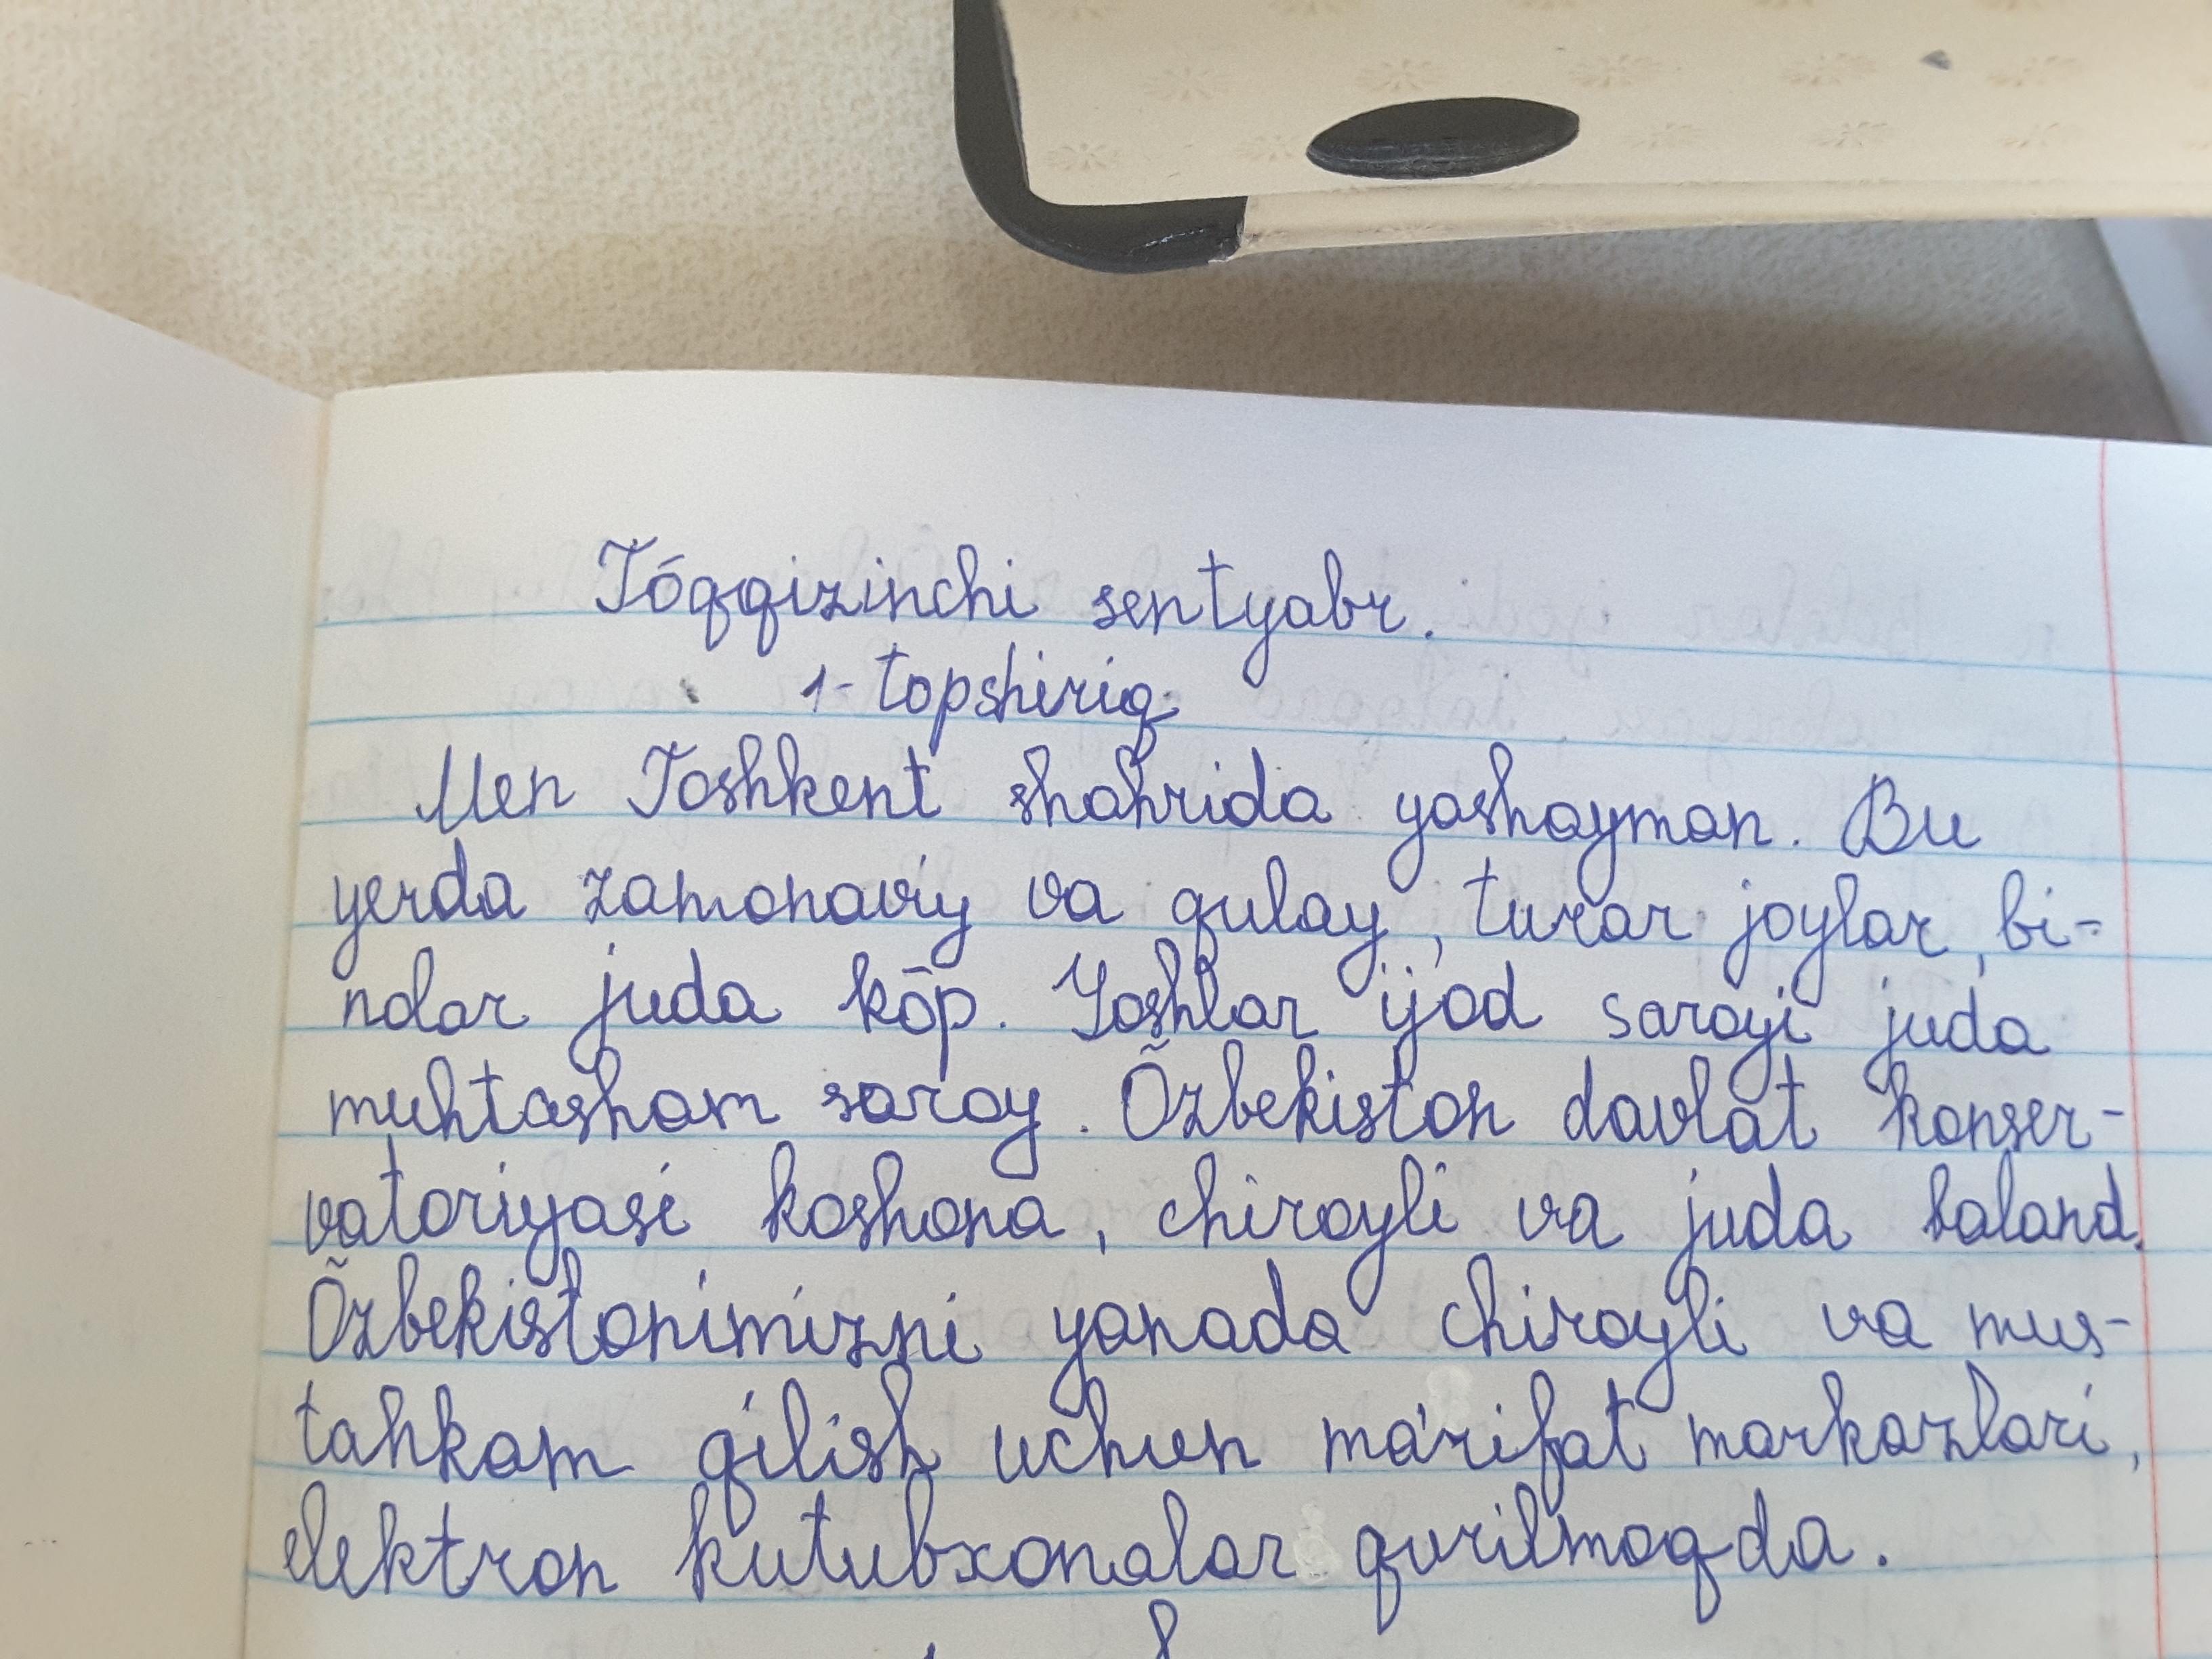 Tóqqizinchi sentyabr.
1-topshiriq
Men Toshkent shahrida yashayman. Bu
yerda zamonaviy va qulay, turar joylar, bi-
nolar juda kõp. Yoshlar ijod saroyi juda
muhtasham saroy. Õzbekiston davlat konser-
vatoriyasi koshona, chiroyli va juda baland.
Õzbekistonimizni yanada chiroyli va mus-
tahkam qilish uchun ma'rifat markazlari,
elektron kutubxonalar qurilmoqda.